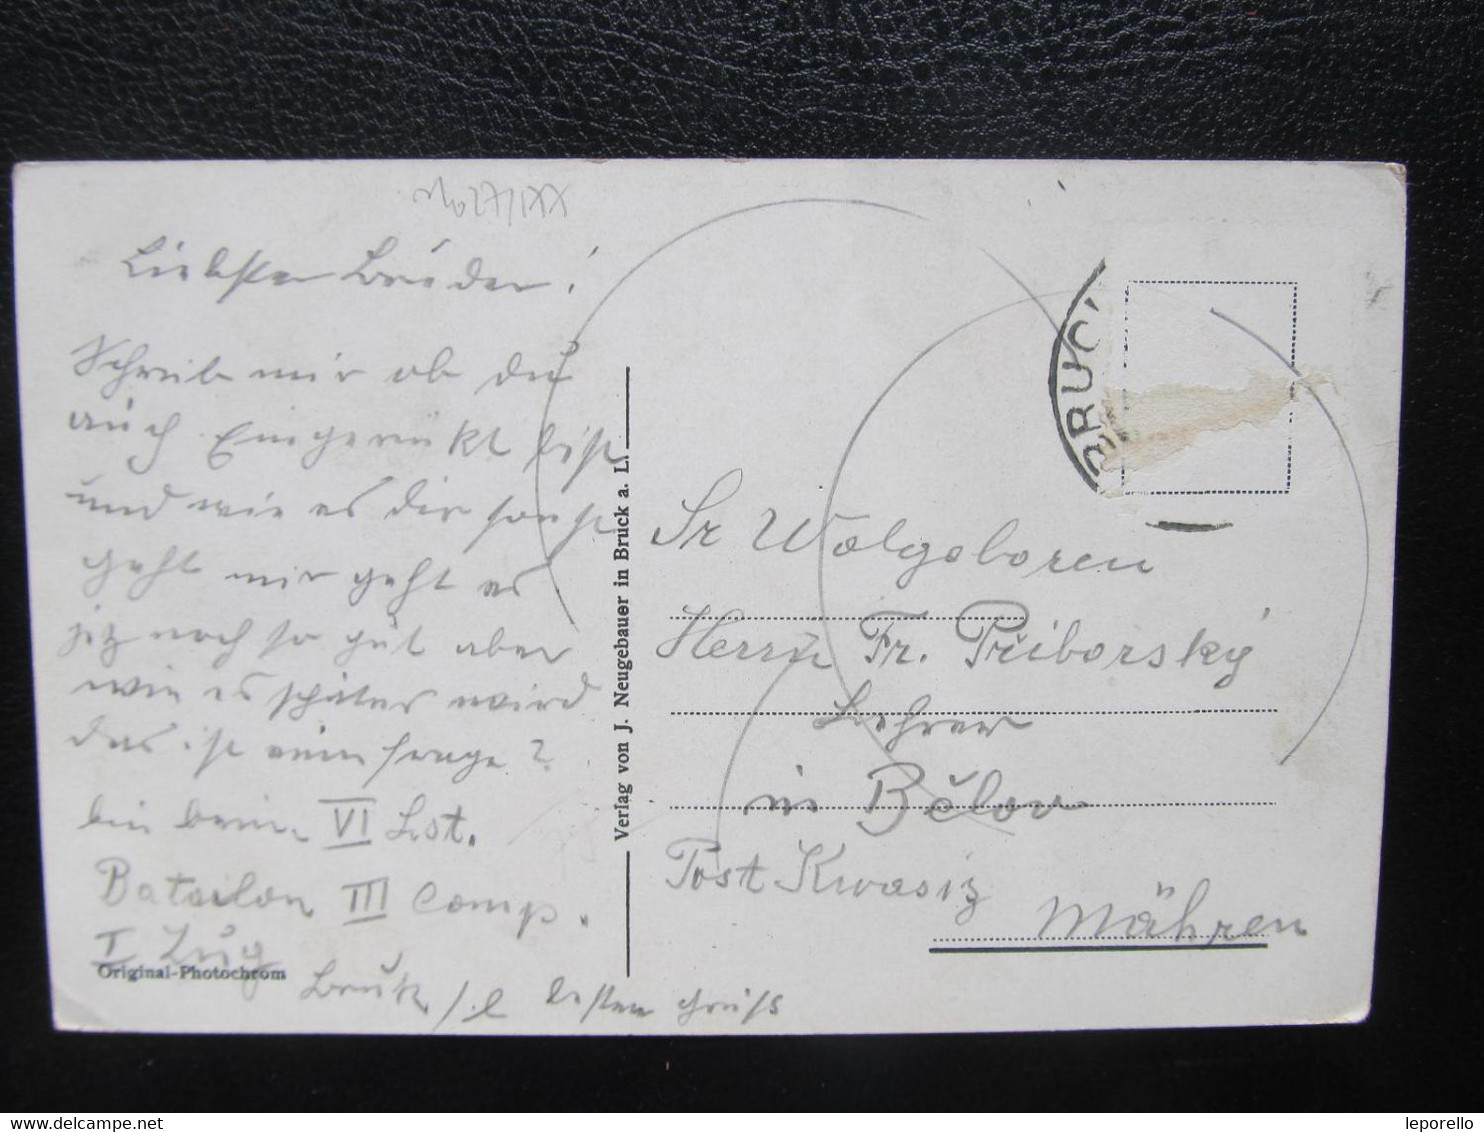 No 27/IXX
Liebster Bruder!
Schreib mir ob du
auch Eingerükt bist
und wie es dir sonst
geht mir geht es
jetz noch so gut aber
wie es später wird
das ist eine frage?
bin beim VI Lst.
Batailon III Comp.
I Zug
Bruk a/L besten Gruß
Original-Photochrom
Verlag von J. Neugebauer in Bruck a. L.
BRUC
Sr Wolgeboren
Herrn Fr. Přiborský
Lehrer
in Bělov
Post Kwasiz
Mähren
leporello